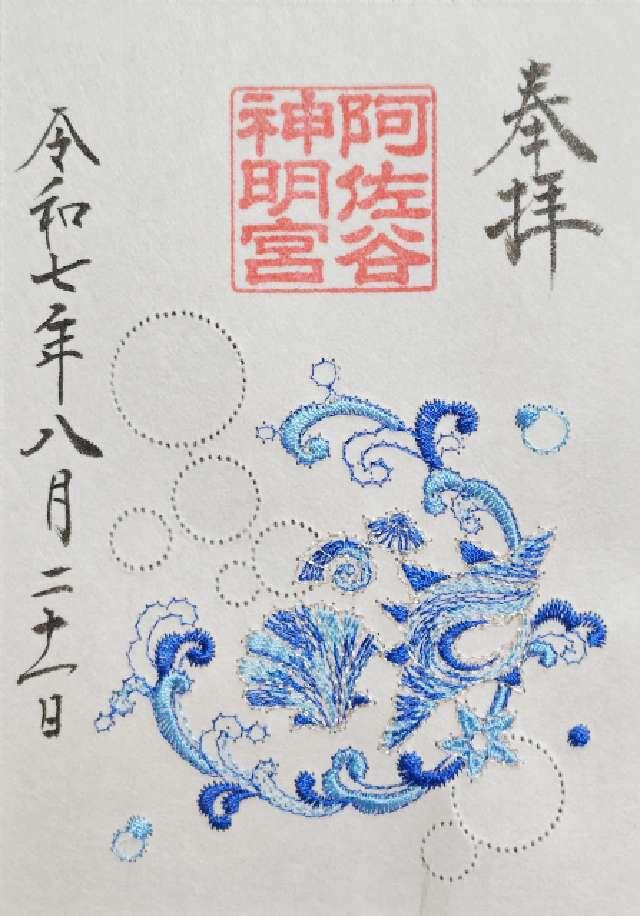 奉拝
阿佐谷
神明宮
令和七年八月二十一日